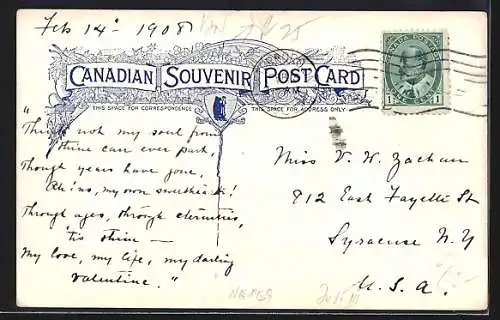 Feb 14 - 1908
25
CANADIAN SOUVENIR POST CARD
THIS SPACE FOR CORRESPONDENCE
THIS SPACE FOR ADDRESS ONLY
1 CENT 1
"Think not my soul from
thine can ever part,
Though years have gone,
Ah! no, my own sweetheart!
Through ages, through eternities,
'tis thine —
My love, my life, my darling
valentine."
Miss V. W.
912 East Fayette St
Syracuse N.Y
U.S.A.